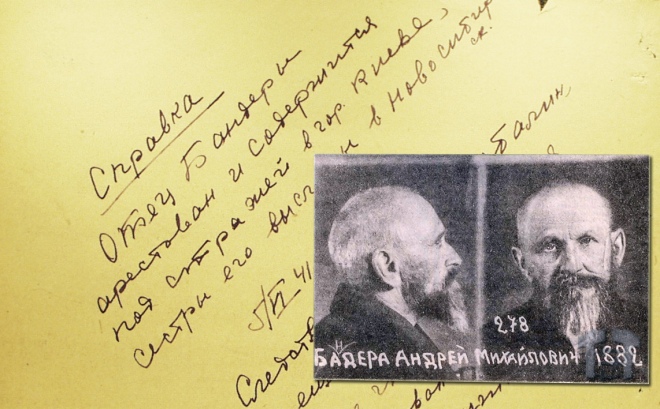 Справка
Отец Бандеры
арестован и содержится
под стражей в гор. Киеве,
сестры его высл н в Новосибир
ск.
5/VI 41
Следств
278
БАНДЕРА АНДРЕЙ МИХАЙЛОВИЧ 1882